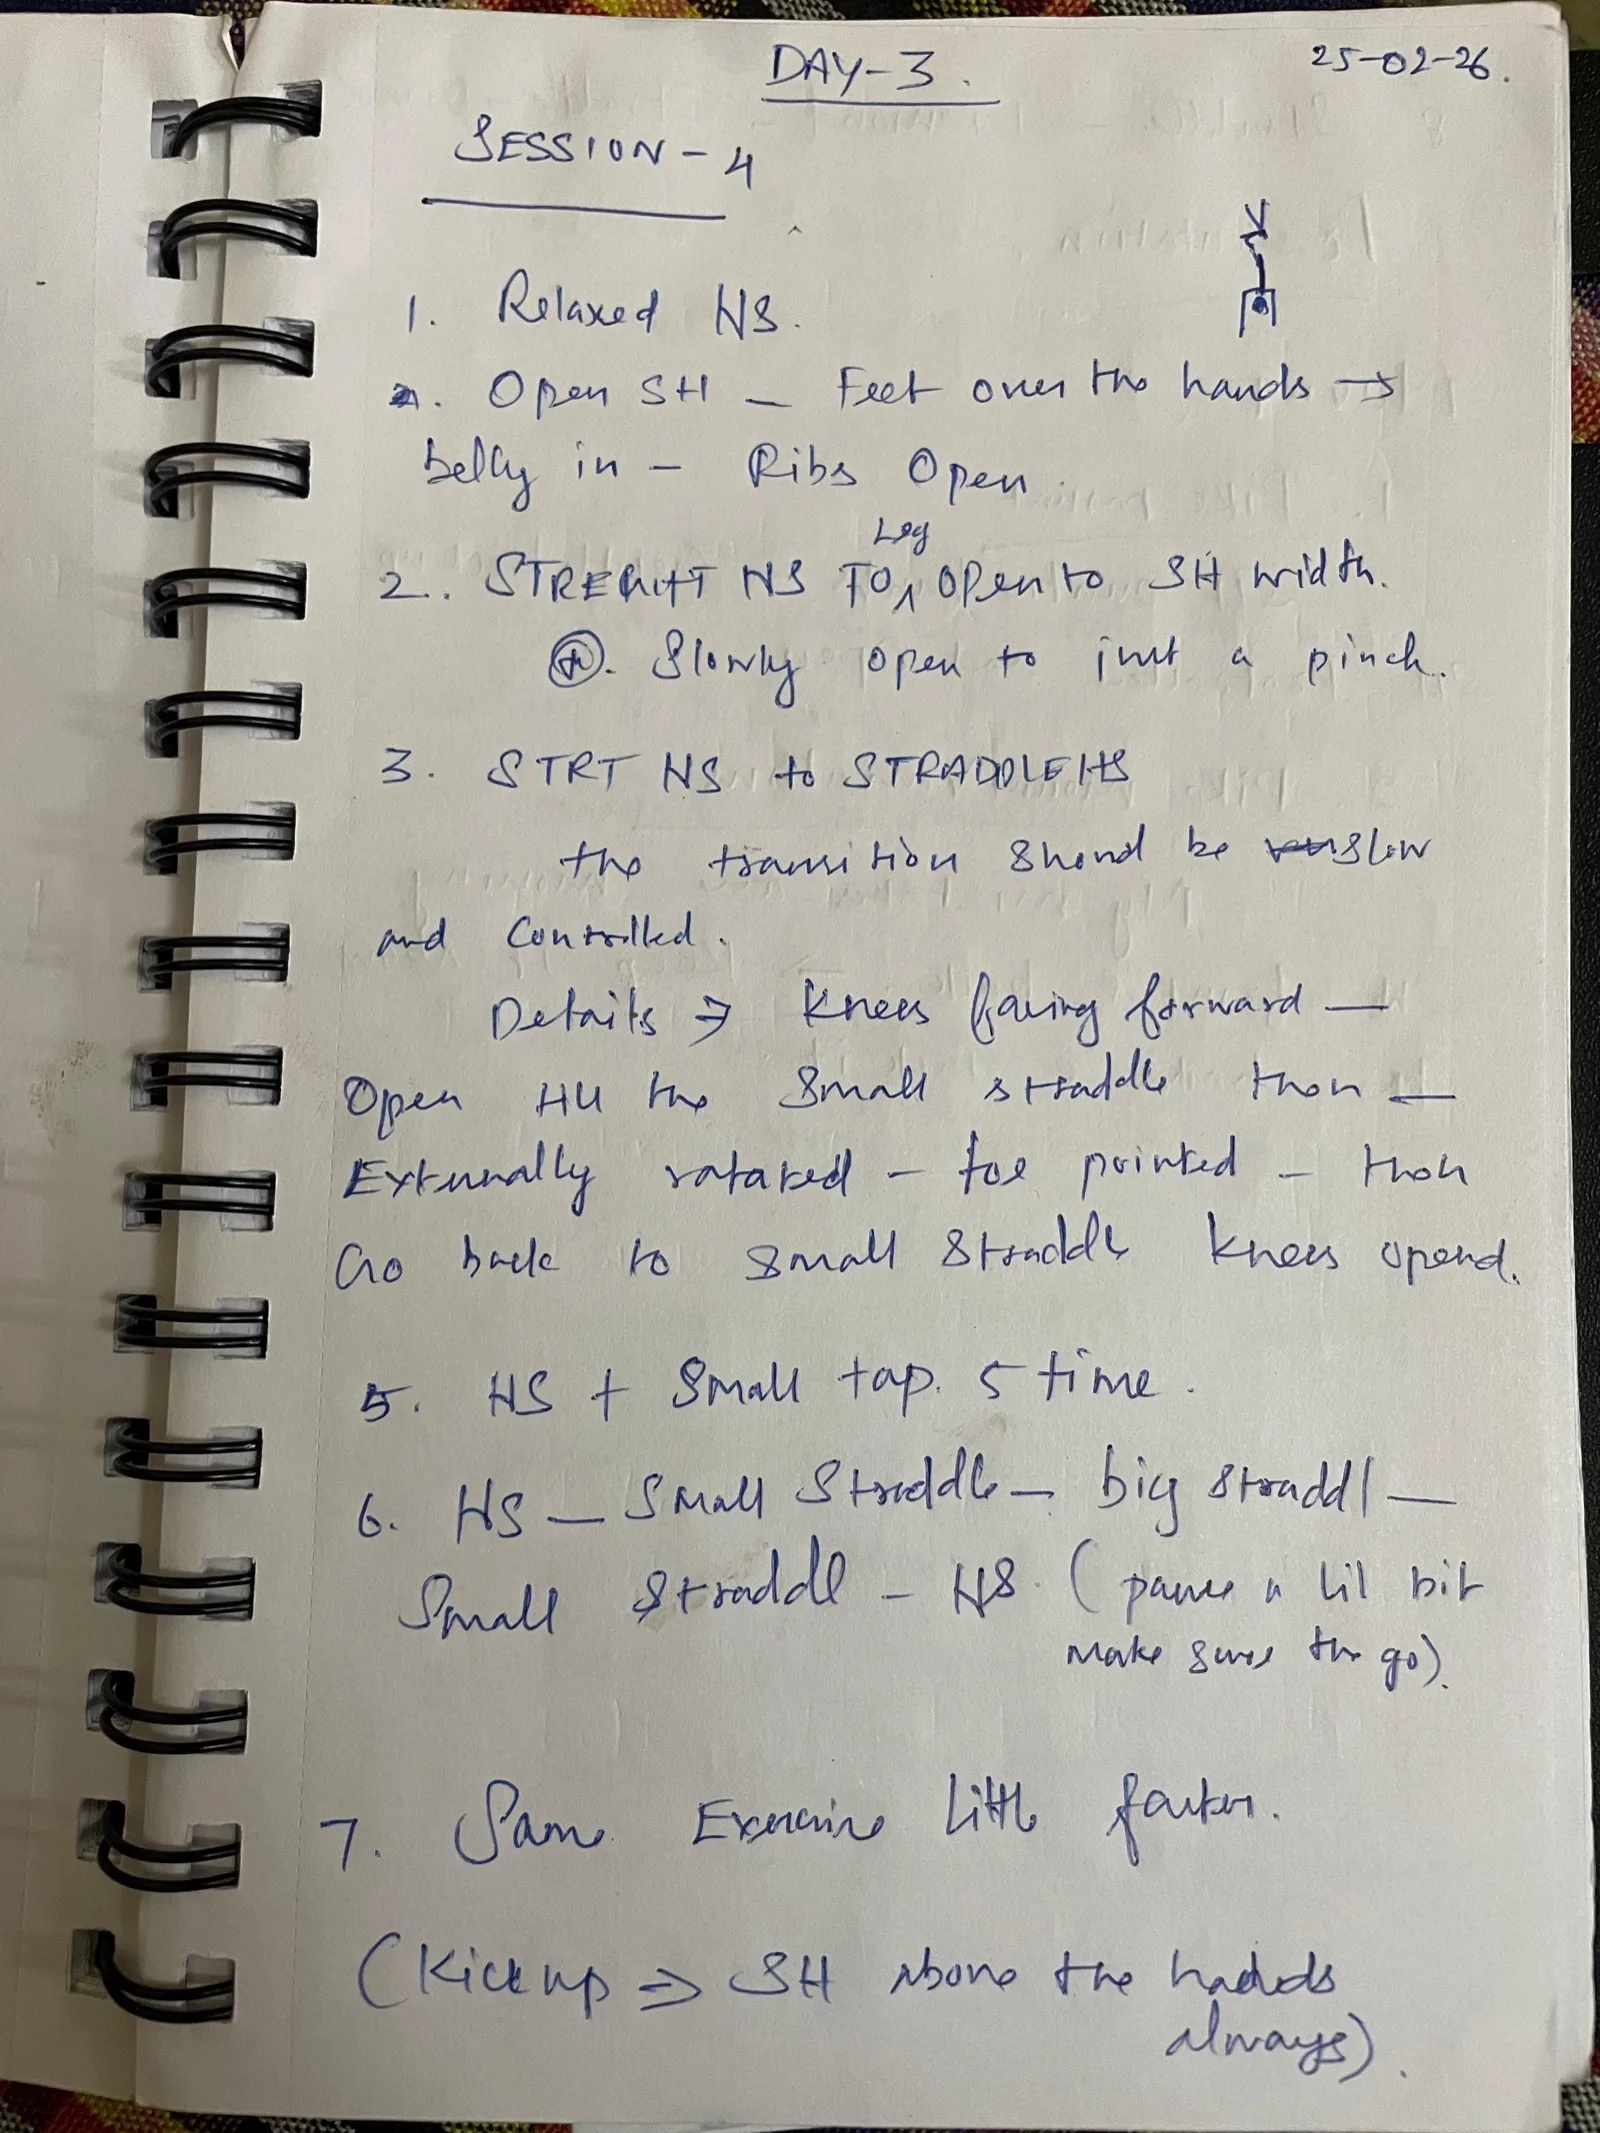 DAY-3.
25-02-26.
SESSION-4
1. Relaxed HS.
Open SH - Feet over the hands →
belly in - Ribs Open.
Leg
2. STREGHT HS TO ∧ Open to SH width.
⊛. Slowly open to just a pinch.
3. STRT HS to STRADDLE HS
the transition shoud be slow
and controlled.
Details ⇒ Knees facing forward —
Open till the Small straddle then —
Externally rotated - toe pointed - then
Go back to small straddle knees opend.
5. HS + Small tap. 5 time.
6. HS — Small Straddle — big straddl —
Small Straddl - HS. (pause a lil bit
make sure the go).
7. Same Exercise little faster.
(Kick up ⇒ SH above the hands
always).